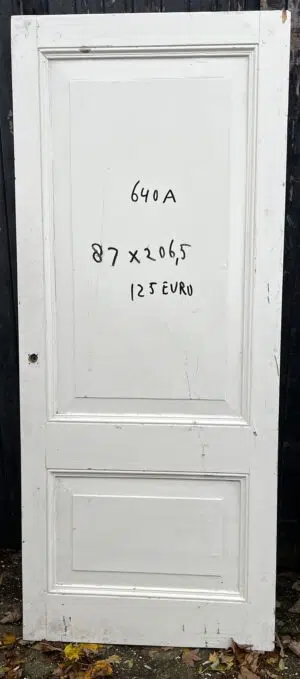 640A
87 x 206,5
125 EURO